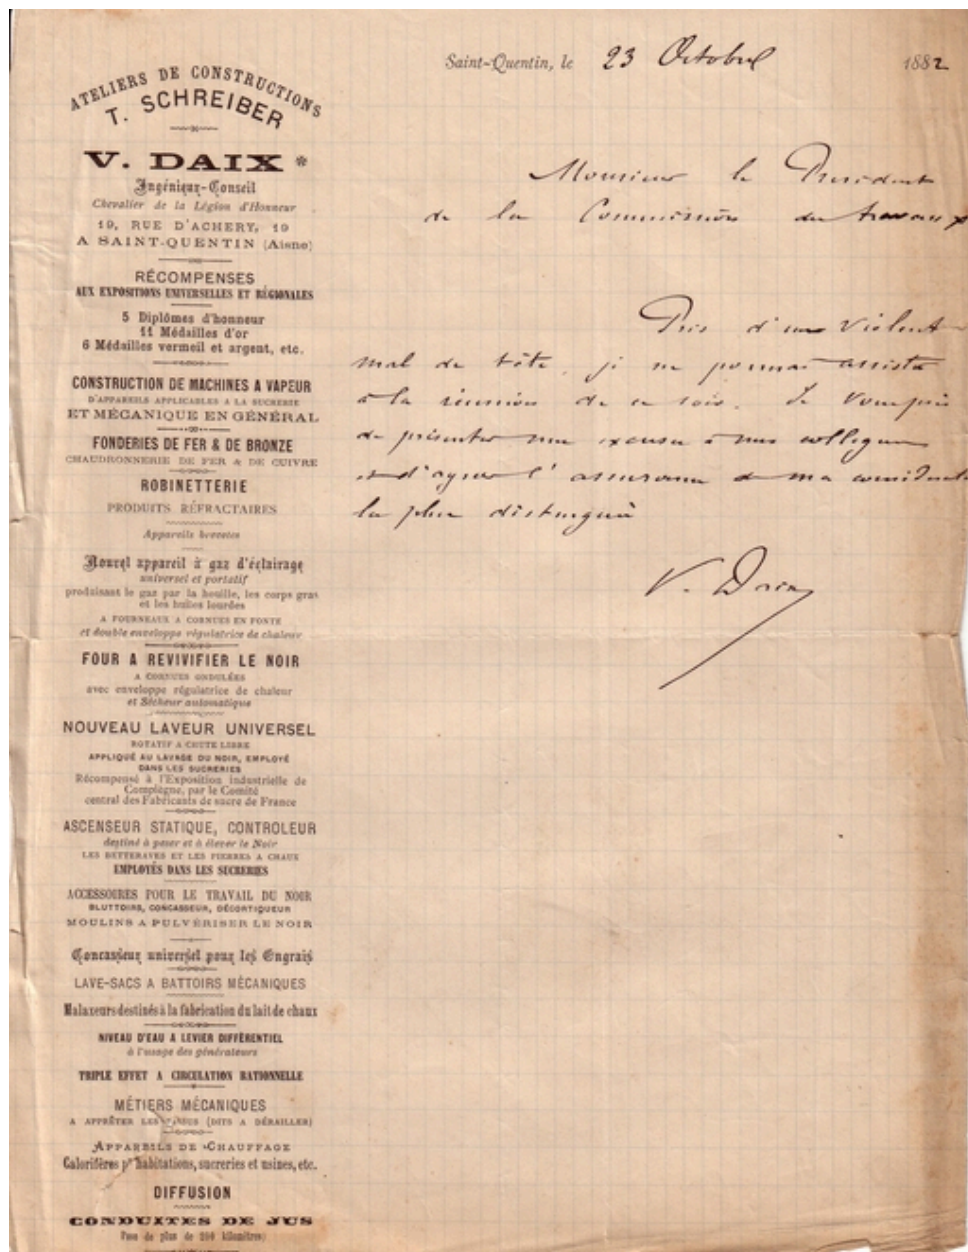 ATELIERS DE CONSTRUCTIONS
T. SCHREIBER
V. DAIX *
Ingénieur-Conseil
Chevalier de la Légion d'Honneur
19, RUE D'ACHERY, 19
A SAINT-QUENTIN (Aisne)
RÉCOMPENSES
AUX EXPOSITIONS UNIVERSELLES ET RÉGIONALES
5 Diplômes d'honneur
11 Médailles d'or
6 Médailles vermeil et argent, etc.
CONSTRUCTION DE MACHINES A VAPEUR
D'APPAREILS APPLICABLES A LA SUCRERIE
ET MÉCANIQUE EN GÉNÉRAL
FONDERIES DE FER & DE BRONZE
CHAUDRONNERIE DE FER & DE CUIVRE
ROBINETTERIE
PRODUITS RÉFRACTAIRES
Appareils brevetés
Nouvel appareil à gaz d'éclairage
universel et portatif
produisant le gaz par la houille, les corps gras
et les huiles lourdes
A FOURNEAUX A CORNUES EN FONTE
et double enveloppe régulatrice de chaleur
FOUR A REVIVIFIER LE NOIR
A CORNUES ONDULÉES
avec enveloppe régulatrice de chaleur
et Sécheur automatique
NOUVEAU LAVEUR UNIVERSEL
ROTATIF A CHUTE LIBRE
APPLIQUÉ AU LAVAGE DU NOIR, EMPLOYÉ
DANS LES SUCRERIES
Récompensé à l'Exposition industrielle de
Compiègne, par le Comité
central des Fabricants de sucre de France
ASCENSEUR STATIQUE, CONTROLEUR
destiné à peser et à élever le Noir
LES BETTERAVES ET LES PIERRES A CHAUX
EMPLOYÉS DANS LES SUCRERIES
ACCESSOIRES POUR LE TRAVAIL DU NOIR
BLUTTOIRS, CONCASSEUR, DÉCORTIQUEUR
MOULINS A PULVÉRISER LE NOIR
Concasseur universel pour les Engrais
LAVE-SACS A BATTOIRS MÉCANIQUES
Malaxeurs destinés à la fabrication du lait de chaux
NIVEAU D'EAU A LEVIER DIFFÉRENTIEL
à l'usage des générateurs
TRIPLE EFFET A CIRCULATION RATIONNELLE
MÉTIERS MÉCANIQUES
A APPRÊTER LES TISSUS (DITS A DÉRAILLER)
APPAREILS DE CHAUFFAGE
Calorifères pr habitations, sucreries et usines, etc.
DIFFUSION
CONDUITES DE JUS
Pose de plus de 200 kilomètres
Saint-Quentin, le 23 Octobre 1882
Monsieur le Président
de la Commission des travaux
Pris d'un violent
mal de tête, je ne pourrai assister
à la réunion de ce soir. Je vous prie
de présenter mes excuses à mes collègues
et d'agréer l'assurance de ma considération
la plus distinguée
V. Daix